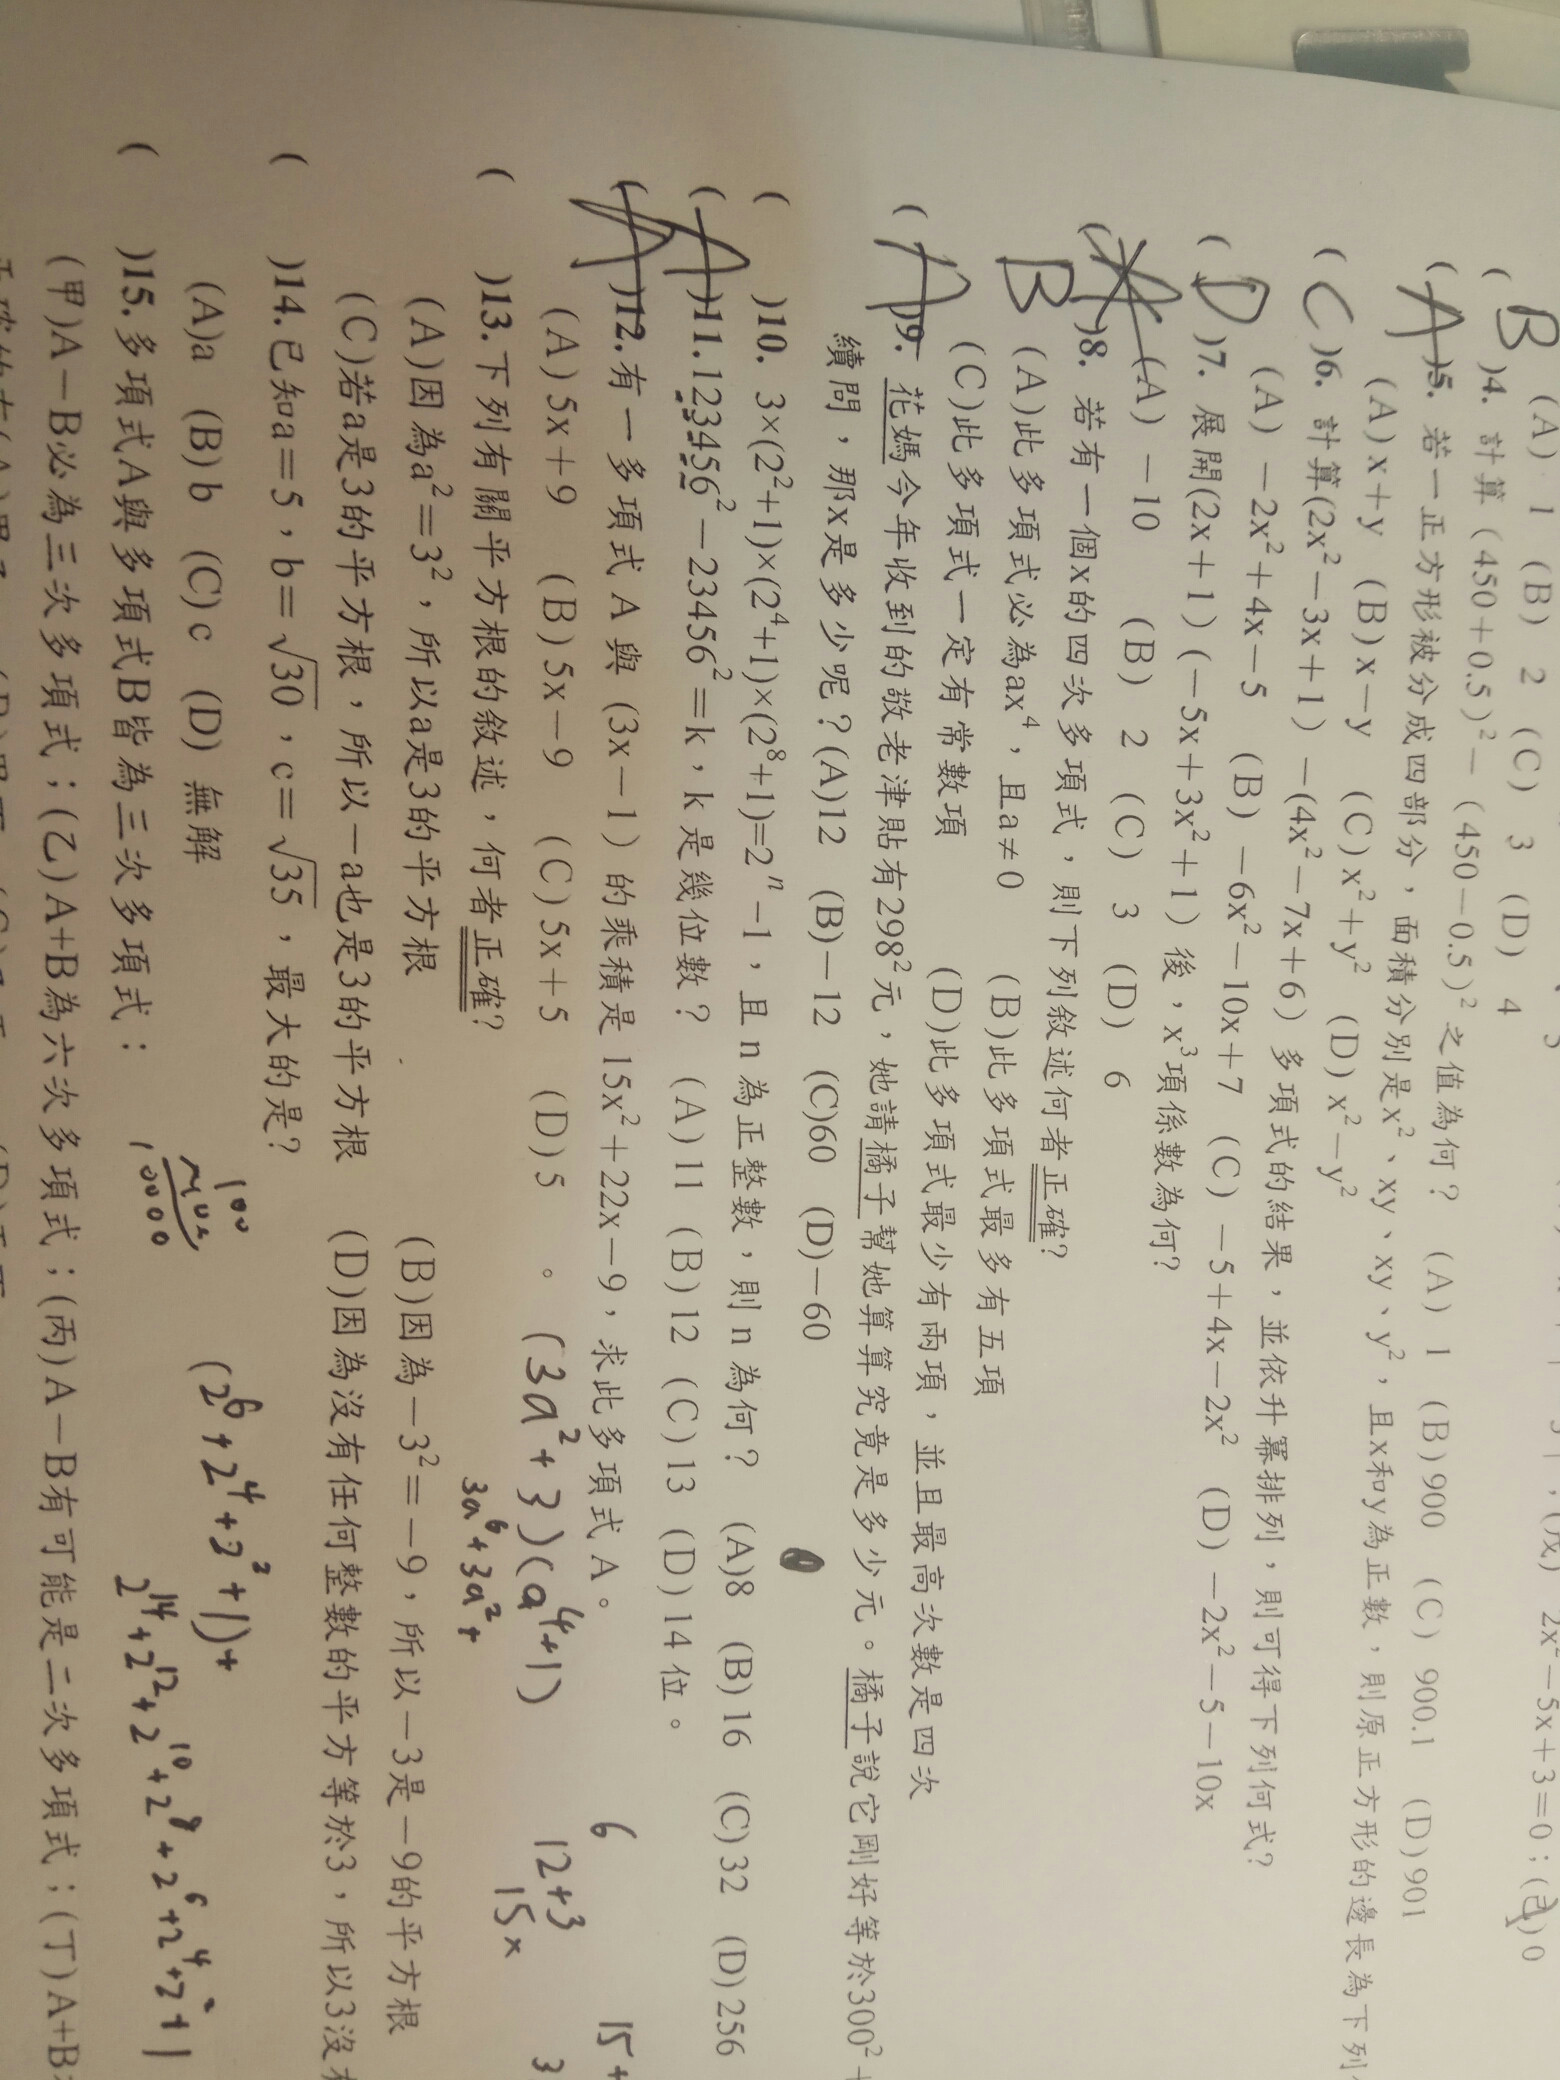 (A) 1 (B) 2 (C) 3 (D) 4
2x²－5x＋3＝0；(己)0
( B )4. 計算 (450＋0.5)²－(450－0.5)²之值為何？ (A) 1 (B)900 (C) 900.1 (D)901
( A )5. 若一正方形被分成四部分，面積分別是x²、xy、xy、y²，且x和y為正數，則原正方形的邊長為下列
(A)x＋y (B)x－y (C)x²＋y² (D)x²－y²
( C )6. 計算(2x²－3x＋1)－(4x²－7x＋6) 多項式的結果，並依升冪排列，則可得下列何式？
(A) －2x²＋4x－5 (B) －6x²－10x＋7 (C) －5＋4x－2x² (D) －2x²－5－10x
( D )7. 展開(2x＋1)(－5x＋3x²＋1) 後，x³項係數為何？
(A) －10 (B) 2 (C) 3 (D) 6
( )8. 若有一個x的四次多項式，則下列敘述何者正確？
B
(A)此多項式必為ax⁴，且a≠0 (B)此多項式最多有五項
(C)此多項式一定有常數項 (D)此多項式最少有兩項，並且最高次數是四次
( A )9. 花媽今年收到的敬老津貼有298²元，她請橘子幫她算算究竟是多少元。橘子說它剛好等於300²＋
續問，那x是多少呢？(A)12 (B)－12 (C)60 (D)－60
( )10. 3×(2²+1)×(2⁴+1)×(2⁸+1)=2ⁿ－1，且n為正整數，則n為何？ (A)8 (B)16 (C)32 (D)256
( A )11. 123456²－23456²＝k，k是幾位數？ (A)11 (B)12 (C)13 (D)14位。
( A )12. 有一多項式A與 (3x－1) 的乘積是15x²＋22x－9，求此多項式A。
(A)5x＋9 (B)5x－9 (C)5x＋5 (D)5 。
(3a²+3)(a⁴+1)
3a⁶+3a²+
6
12+3
15x
15+
3
( )13. 下列有關平方根的敘述，何者正確？
(A)因為a²＝3²，所以a是3的平方根 (B)因為－3²＝－9，所以－3是－9的平方根
(C)若a是3的平方根，所以－a也是3的平方根 (D)因為沒有任何整數的平方等於3，所以3沒有
( )14. 已知a＝5，b＝√30，c＝√35，最大的是？
(A)a (B)b (C)c (D) 無解
100
10000
2¹⁴+2¹²+2¹⁰+2⁸+2⁶+2⁴+2²+1
( )15. 多項式A與多項式B皆為三次多項式：
(甲)A－B必為三次多項式；(乙)A+B為六次多項式；(丙)A－B有可能是二次多項式；(丁)A+B